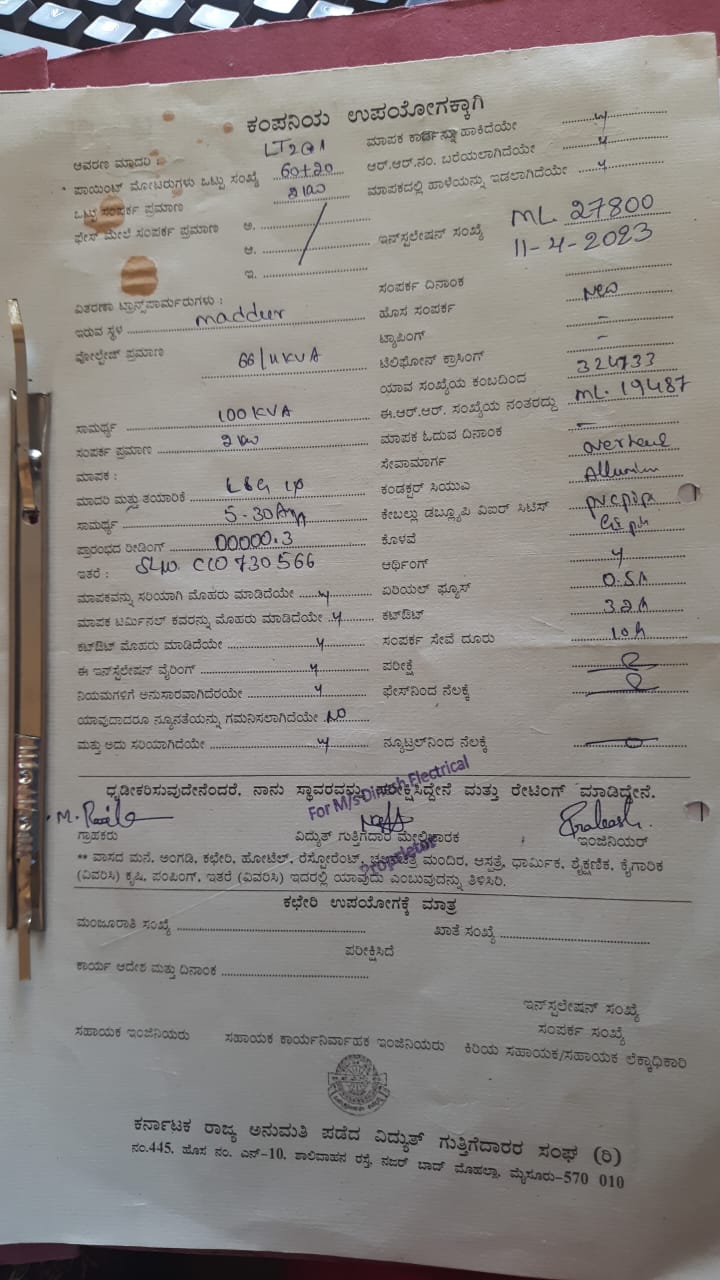 ಕಂಪನಿಯ ಉಪಯೋಗಕ್ಕಾಗಿ
ಆವರಣ ಮಾದರಿ : LT2a1 ಮಾಪಕ ಕಾರ್ಡನ್ನು ಹಾಕಿದೆಯೇ y
ಪಾಯಿಂಟ್ ಮೋಟರುಗಳು ಒಟ್ಟು ಸಂಖ್ಯೆ 60+20 ಆರ್.ಆರ್.ನಂ. ಬರೆಯಲಾಗಿದೆಯೇ y
ಒಟ್ಟು ಸಂಪರ್ಕ ಪ್ರಮಾಣ 2 kw ಮಾಪಕದಲ್ಲಿ ಹಾಳೆಯನ್ನು ಇಡಲಾಗಿದೆಯೇ y
ಫೇಸ್ ಮೇಲೆ ಸಂಪರ್ಕ ಪ್ರಮಾಣ ಅ.
ಆ. ಇನ್‌ಸ್ಟಲೇಷನ್ ಸಂಖ್ಯೆ ML 27800
11-4-2023
ಇ.
ವಿತರಣಾ ಟ್ರಾನ್ಸ್‌ಫಾರ್ಮರುಗಳು : ಸಂಪರ್ಕ ದಿನಾಂಕ
ಇರುವ ಸ್ಥಳ maddur ಹೊಸ ಸಂಪರ್ಕ New
ಟ್ಯಾಪಿಂಗ್ -
ವೋಲ್ಟೇಜ್ ಪ್ರಮಾಣ 66/11KVA ಟೆಲಿಫೋನ್ ಕ್ರಾಸಿಂಗ್ -
ಯಾವ ಸಂಖ್ಯೆಯ ಕಂಬದಿಂದ 324733
ಸಾಮರ್ಥ್ಯ 100 KVA ಈ.ಆರ್.ಆರ್. ಸಂಖ್ಯೆಯ ನಂತರದ್ದು ML. 19487
ಸಂಪರ್ಕ ಪ್ರಮಾಣ 2 kw ಮಾಪಕ ಓದುವ ದಿನಾಂಕ -
ಮಾಪಕ : ಸೇವಾಮಾರ್ಗ overhead
ಮಾದರಿ ಮತ್ತು ತಯಾರಿಕೆ L&G 1p ಕಂಡಕ್ಟರ್ ಸಿಯುಎ
ಸಾಮರ್ಥ್ಯ 5-30Am ಕೇಬಲ್ಲು ಡಬ್ಲ್ಯೂಪಿ ವಿಐರ್ ಸಿಟಿಸ್ pvc pipe
ಪ್ರಾರಂಭದ ರೀಡಿಂಗ್ 00000.3 ಕೊಳವೆ
ಇತರೆ : SLNo. CCO 730566 ಆರ್ಥಿಂಗ್ y
ಮಾಪಕವನ್ನು ಸರಿಯಾಗಿ ಮೊಹರು ಮಾಡಿದೆಯೇ y ಏರಿಯಲ್ ಫ್ಯೂಸ್ 0.5A
ಮಾಪಕ ಟರ್ಮಿನಲ್ ಕವರನ್ನು ಮೊಹರು ಮಾಡಿದೆಯೇ y ಕಟ್‌ಔಟ್ 32A
ಕಟ್‌ಔಟ್ ಮೊಹರು ಮಾಡಿದೆಯೇ y ಸಂಪರ್ಕ ಸೇವೆ ದೂರು
ಈ ಇನ್‌ಸ್ಟಲೇಷನ್ ವೈರಿಂಗ್ y ಪರೀಕ್ಷೆ
ನಿಯಮಗಳಿಗೆ ಅನುಸಾರವಾಗಿದೆಯೇ y ಫೇಸ್‌ನಿಂದ ನೆಲಕ್ಕೆ
ಯಾವುದಾದರೂ ನ್ಯೂನತೆಯನ್ನು ಗಮನಿಸಲಾಗಿದೆಯೇ NO
ಮತ್ತು ಅದು ಸರಿಯಾಗಿದೆಯೇ y ನ್ಯೂಟ್ರಲ್‌ನಿಂದ ನೆಲಕ್ಕೆ
ಧೃಡೀಕರಿಸುವುದೇನೆಂದರೆ, ನಾನು ಸ್ಥಾವರವನ್ನು ಪರೀಕ್ಷಿಸಿದ್ದೇನೆ ಮತ್ತು ರೇಟಿಂಗ್ ಮಾಡಿದ್ದೇನೆ.
For M/s Dinesh Electrical
Proprietor
ಗ್ರಾಹಕರು ವಿದ್ಯುತ್ ಗುತ್ತಿಗೆದಾರ ಮೇಲ್ವಿಚಾರಕ ಇಂಜಿನಿಯರ್
** ವಾಸದ ಮನೆ, ಅಂಗಡಿ, ಕಛೇರಿ, ಹೋಟೆಲ್, ರೆಸ್ಟೋರೆಂಟ್, ಚಲನಚಿತ್ರ ಮಂದಿರ, ಆಸ್ಪತ್ರೆ, ಧಾರ್ಮಿಕ, ಶೈಕ್ಷಣಿಕ, ಕೈಗಾರಿಕ
(ವಿವರಿಸಿ) ಕೃಷಿ, ಪಂಪಿಂಗ್, ಇತರೆ (ವಿವರಿಸಿ) ಇದರಲ್ಲಿ ಯಾವುದು ಎಂಬುವುದನ್ನು ತಿಳಿಸಿರಿ.
ಕಛೇರಿ ಉಪಯೋಗಕ್ಕೆ ಮಾತ್ರ
ಮಂಜೂರಾತಿ ಸಂಖ್ಯೆ ಖಾತೆ ಸಂಖ್ಯೆ
ಪರೀಕ್ಷಿಸಿದೆ
ಕಾರ್ಯ ಆದೇಶ ಮತ್ತು ದಿನಾಂಕ
ಇನ್‌ಸ್ಟಲೇಷನ್ ಸಂಖ್ಯೆ
ಸಂಪರ್ಕ ಸಂಖ್ಯೆ
ಸಹಾಯಕ ಇಂಜಿನಿಯರು ಸಹಾಯಕ ಕಾರ್ಯನಿರ್ವಾಹಕ ಇಂಜಿನಿಯರು ಕಿರಿಯ ಸಹಾಯಕ/ಸಹಾಯಕ ಲೆಕ್ಕಾಧಿಕಾರಿ
ಕರ್ನಾಟಕ ರಾಜ್ಯ ಅನುಮತಿ ಪಡೆದ ವಿದ್ಯುತ್ ಗುತ್ತಿಗೆದಾರರ ಸಂಘ (ರಿ)
ನಂ.445, ಹೊಸ ನಂ. ಎನ್-10, ಶಾಲಿವಾಹನ ರಸ್ತೆ, ನಜರ್ ಬಾದ್ ಮೊಹಲ್ಲಾ, ಮೈಸೂರು-570 010